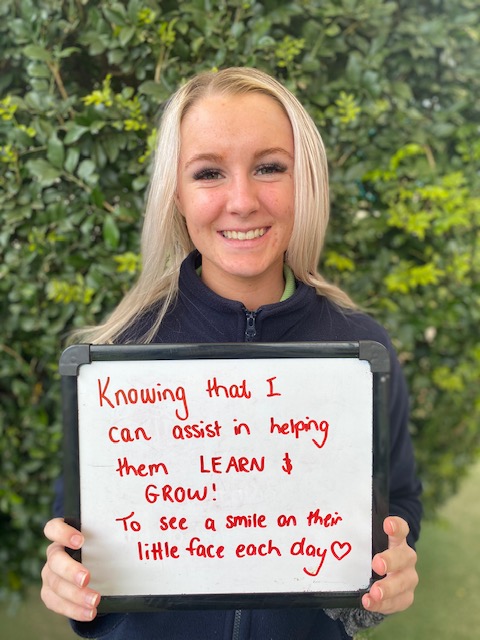 Knowing that I
can assist in helping
them LEARN &
GROW!
To see a smile on their
little face each day♡